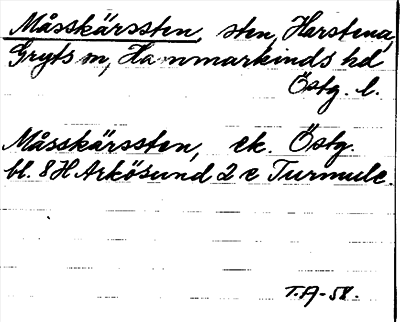 Måsskärssten, sten, Harstena,
Gryts sn, Hammarkinds hd
Östg. l.
Måsskärssten, ek. Östg.
bl. 8H Arkösund 2 c Turmulc.
T.A-58.